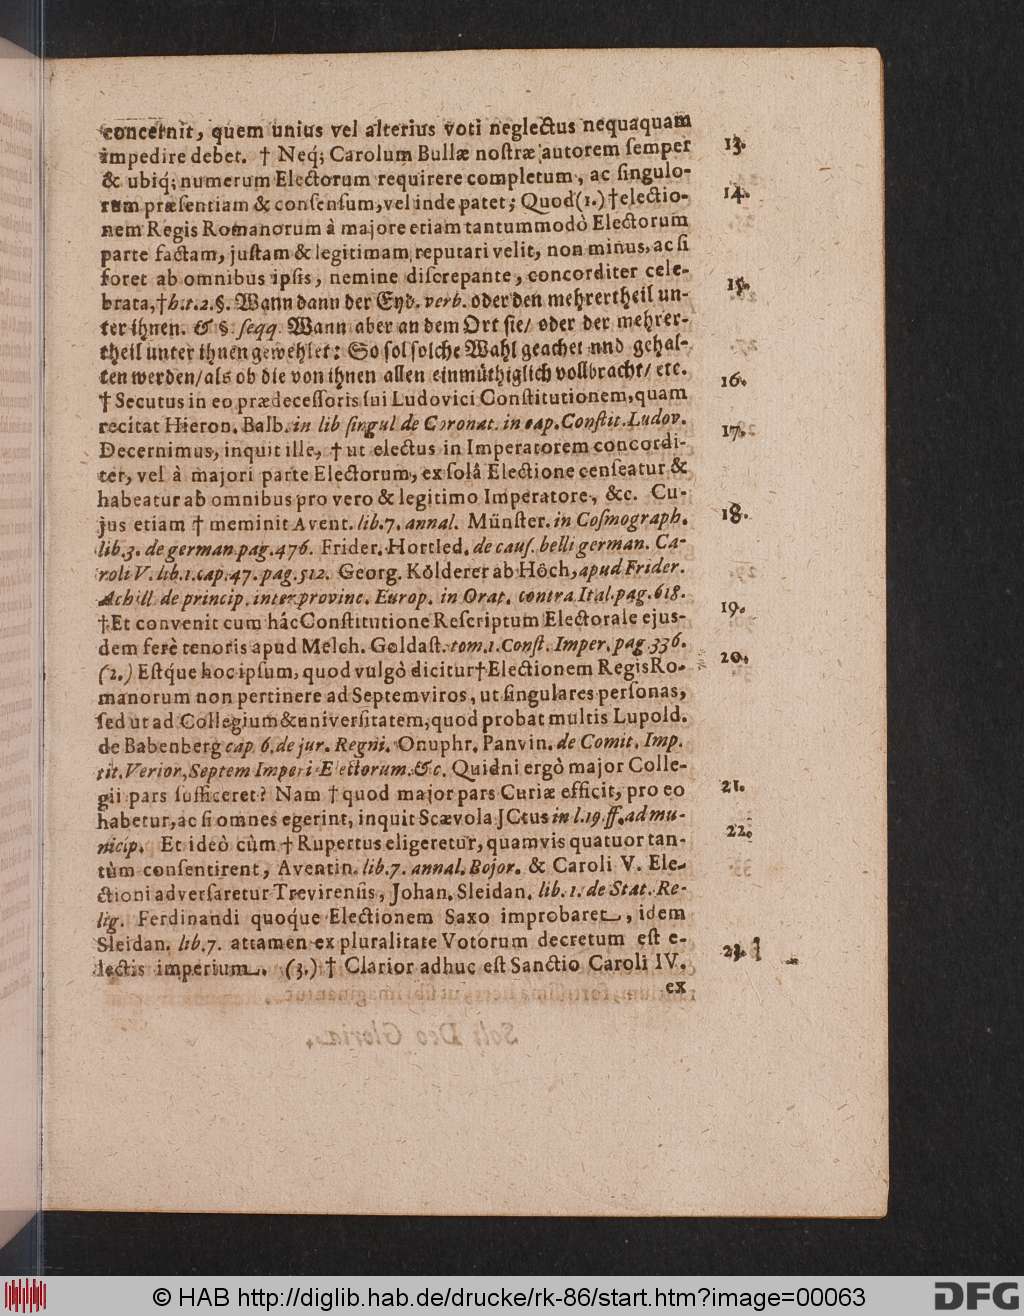 concernit, quem unius vel alterius voti neglectus nequaquam
impedire debet. † Neq; Carolum Bullæ noſtræ autorem ſemper
13.
& ubiq; numerum Electorum requirere completum, ac ſingulo-
rum præſentiam & conſenſum, vel inde patet; Quod (1.) † electio-
14.
nem Regis Romanorum à majore etiam tantummodò Electorum
parte factam, juſtam & legitimam reputari velit, non minus, ac ſi
foret ab omnibus ipſis, nemine diſcrepante, concorditer cele-
brata, † b. t. 2. §. Wann dann der Eyd. verb. oder den mehrertheil un-
15.
ter ihnen. & §. ſeqq. Wann aber an dem Ort ſie/ oder der mehrer-
theil unter ihnen gewehlet: So ſol ſolche Wahl geachet nnd gehal-
ten werden/ als ob die von ihnen allen einmüthiglich vollbracht/ etc.
† Secutus in eo prædeceſſoris ſui Ludovici Conſtitutionem, quam
16.
recitat Hieron. Balb. in lib ſingul de Coronat. in cap. Conſtit. Ludov.
Decernimus, inquit ille, † ut electus in Imperatorem concordi-
17.
ter, vel à majori parte Electorum, ex ſolâ Electione cenſeatur &
habeatur ab omnibus pro vero & legitimo Imperatore, &c. Cu-
jus etiam † meminit Avent. lib. 7. annal. Münſter. in Coſmograph.
18.
lib. 3. de german. pag. 476. Frider. Hortled. de cauſ. belli german. Ca-
roli V. lib. 1. cap. 47. pag. 512. Georg. Kölderer ab Hôch, apud Frider.
Achill. de princip. inter provinc. Europ. in Orat. contra Ital. pag. 618.
† Et convenit cum hâc Conſtitutione Reſcriptum Electorale ejus-
19.
dem ferè tenoris apud Melch. Goldaſt. tom. 1. Conſt. Imper. pag 336.
(2.) Eſtque hoc ipſum, quod vulgò dicitur † Electionem Regis Ro-
20.
manorum non pertinere ad Septemviros, ut ſingulares perſonas,
ſed ut ad Collegium & univerſitatem, quod probat multis Lupold.
de Babenberg cap 6. de jur. Regni. Onuphr. Panvin. de Comit. Imp.
tit. Verior, Septem Imperi Electorum. &c. Quidni ergò major Colle-
gii pars ſufficeret? Nam † quod major pars Curiæ efficit, pro eo
21.
habetur, ac ſi omnes egerint, inquit Scævola JCtus in l. 19. ff. ad mu-
nicip. Et ideò cùm † Rupertus eligeretur, quamvis quatuor tan-
22.
tùm conſentirent, Aventin. lib. 7. annal. Bojor. & Caroli V. Ele-
ctioni adverſaretur Trevirenſis, Johan. Sleidan. lib. 1. de Stat. Re-
lig. Ferdinandi quoque Electionem Saxo improbaret, idem
Sleidan. lib. 7. attamen ex pluralitate Votorum decretum eſt e-
lectis imperium. (3.) † Clarior adhuc eſt Sanctio Caroli IV.
23.
ex
© HAB http://diglib.hab.de/drucke/rk-86/start.htm?image=00063
DFG